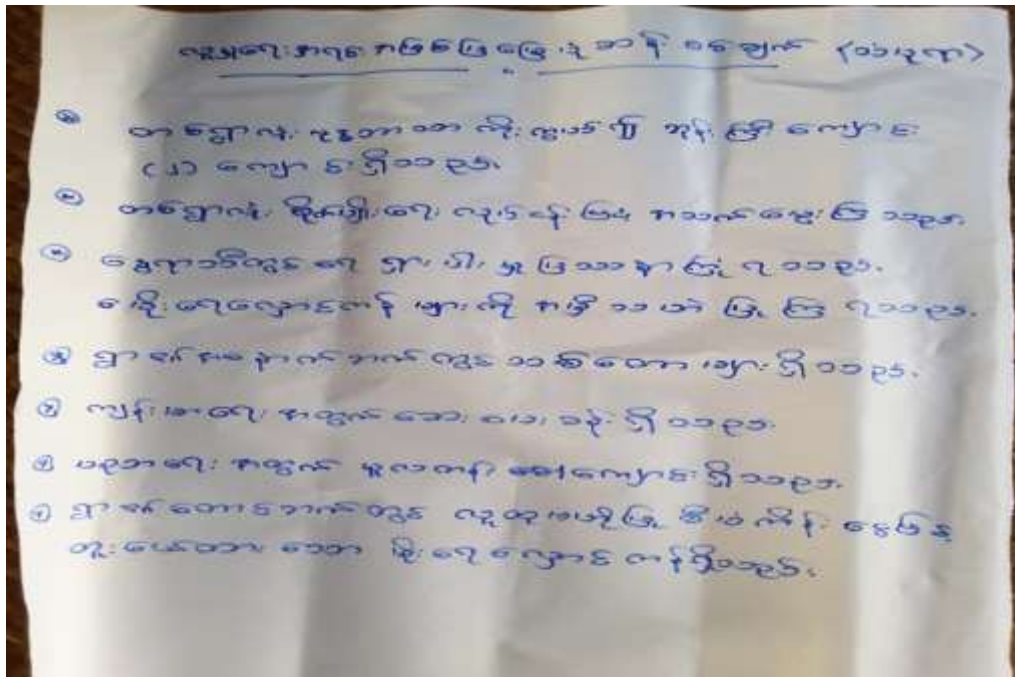 လူမှုရေးအရ အဖြစ်ပြု မြေပုံ ဆန်းစစ်ချက် (သဲပုံကာ)
၁ တစ်ရွာလုံး ဗုဒ္ဓဘာသာ ကိုးကွယ်၍ ဘုန်းကြီးကျောင်း
(၂) ကျောင်းရှိသည်။
၂ တစ်ရွာလုံး စိုက်ပျိုးရေး လုပ်ငန်းဖြင့် အသက်မွေးကြသည်။
၃ နွေရာသီတွင် ရေရှားပါးမှု ပြဿနာကြုံရသည်။
မိုးရေလှောင်ကန်များကို အမှီသဟဲပြုကြရသည်။
၄ ရွာ၏အနောက်ဘက်တွင် သစ်တောများရှိသည်။
၅ ကျန်းမာရေးအတွက် ဆေးပေးခန်းရှိသည်။
၆ ပညာရေးအတွက် မူလတန်းကျောင်းရှိသည်။
၇ ရွာ၏တောင်ဘက်တွင် လူထု ဗဟိုပြု စီမံကိန်း ငွေဖြင့်
တူးဖော်ထားသော မိုးရေလှောင်ကန်ရှိသည်။